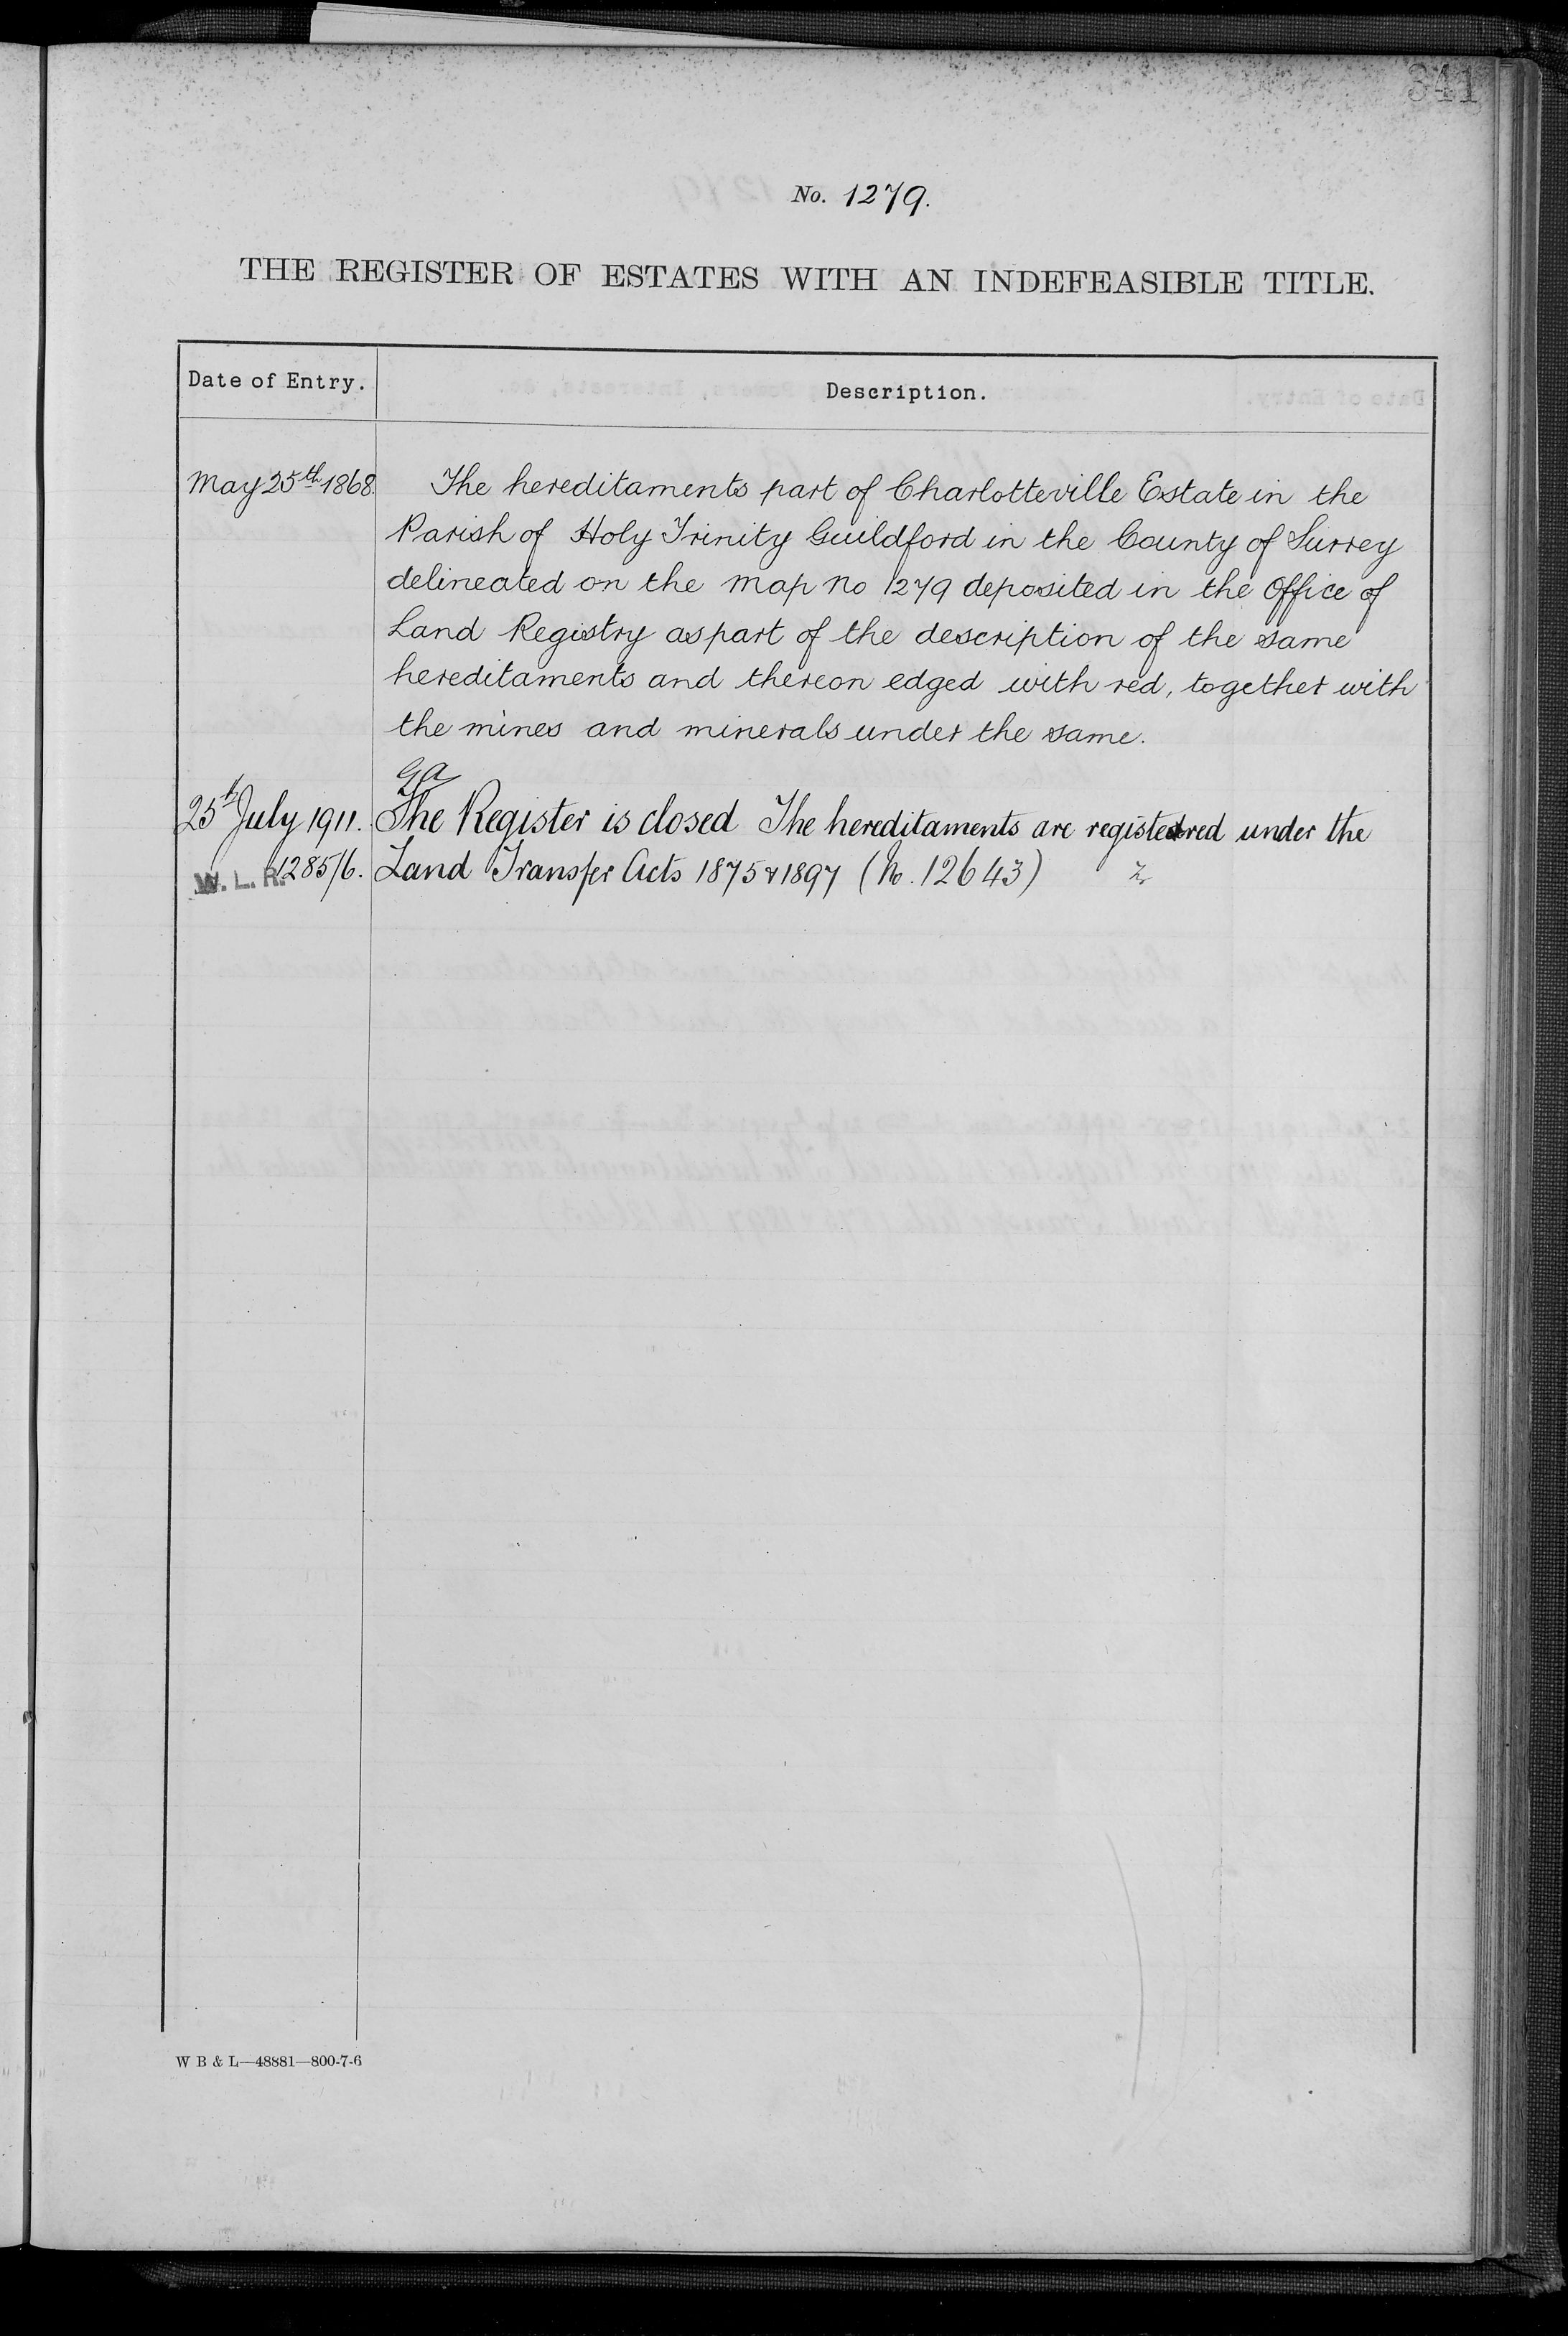 341
No. 1279.
THE REGISTER OF ESTATES WITH AN INDEFEASIBLE TITLE.
Date of Entry.
Description.
May 25th 1868.
The hereditaments part of Charlotteville Estate in the
Parish of Holy Trinity Guildford in the County of Surrey
delineated on the Map No 1279 deposited in the Office of
Land Registry as part of the description of the same
hereditaments and thereon edged with red, together with
the mines and minerals under the same.
25th July 1911.
The Register is closed The hereditaments are registered under the
W. L. R. 1285/6.
Land Transfer Acts 1875 & 1897 (No. 12643)
W B & L—48881—800-7-6